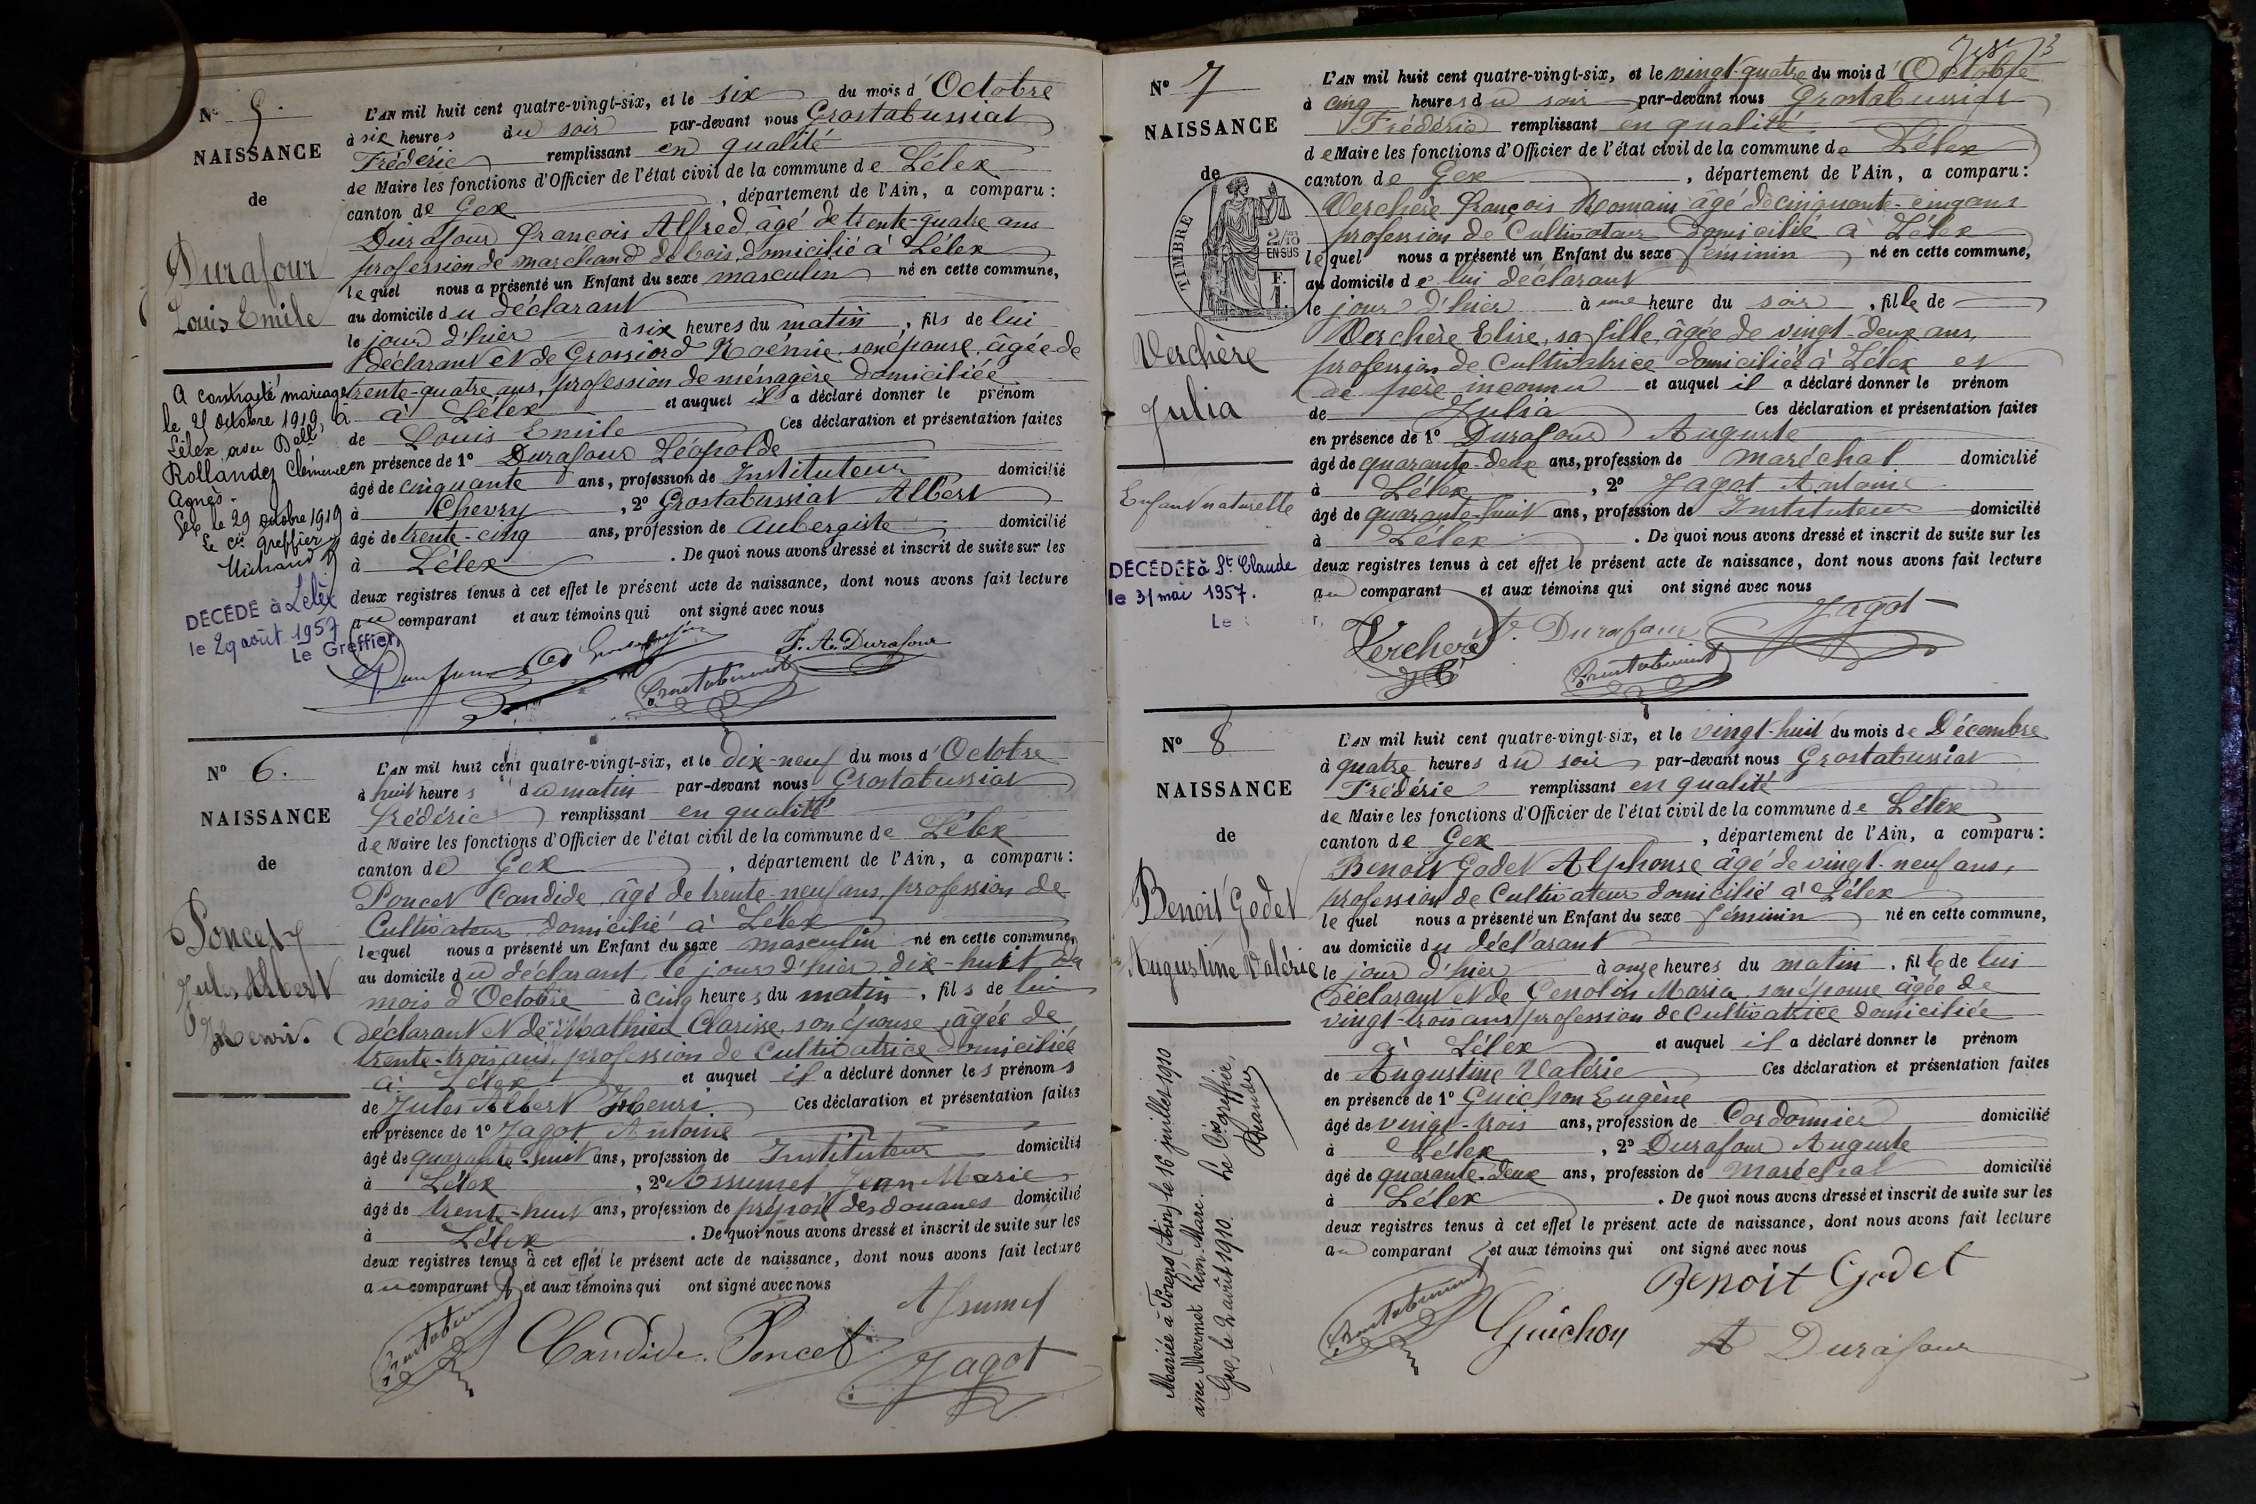 No 5.
NAISSANCE
de
Durafour
Louis Emile
A contracté mariage
le 25 octobre 1919, à
Lélex avec Delle
Rollandez Clémence
Agnès.
Gex le 29 octobre 1919
Le cis greffier
DÉCÉDÉ à Lélex
le 29 août 1957
Le Greffier,
L'AN mil huit cent quatre-vingt-six, et le six du mois d'Octobre
à six heures du soir par-devant nous Grostabussiat
Frédéric remplissant en qualité
de Maire les fonctions d'Officier de l'état civil de la commune de Lélex
canton de Gex, département de l'Ain, a comparu :
Durafour François Alfred, âgé de trente-quatre ans
profession de marchand de bois, domicilié à Lélex
lequel nous a présenté un Enfant du sexe masculin né en cette commune,
au domicile du déclarant
le jour d'hier à six heures du matin, fils de lui
déclarant et de Grossiord Noémie, son épouse, âgée de
trente-quatre ans, profession de ménagère domiciliée
à Lélex et auquel il a déclaré donner le prénom
de Louis Emile Ces déclaration et présentation faites
en présence de 1o Durafour Léopolde
âgé de cinquante ans, profession de Instituteur domicilié
à Chevry, 2o Grostabussiat Albert
âgé de trente-cinq ans, profession de Aubergiste domicilié
à Lélex. De quoi nous avons dressé et inscrit de suite sur les
deux registres tenus à cet effet le présent acte de naissance, dont nous avons fait lecture
au comparant et aux témoins qui ont signé avec nous
F. A. Durafour
Durafour
Grostabussiat
No 6.
NAISSANCE
de
Poncet
Jules Albert
Henri.
L'AN mil huit cent quatre-vingt-six, et le dix-neuf du mois d'Octobre
à huit heures du matin par-devant nous Grostabussiat
Frédéric remplissant en qualité
de Maire les fonctions d'Officier de l'état civil de la commune de Lélex
canton de Gex, département de l'Ain, a comparu :
Poncet Candide, âgé de trente-neuf ans, profession de
Cultivateur domicilié à Lélex
lequel nous a présenté un Enfant du sexe masculin né en cette commune,
au domicile du déclarant, le jour d'hier dix-huit du
mois d'Octobre à cinq heures du matin, fils de lui
déclarant et de Mathieu Clarisse, son épouse, âgée de
trente-trois ans, profession de Cultivatrice domiciliée
à Lélex et auquel il a déclaré donner les prénoms
de Jules Albert Henri. Ces déclaration et présentation faites
en présence de 1o Jagot Antoine
âgé de quarante-huit ans, profession de Instituteur domicilié
à Lélex, 2o Assumel Jean Marie
âgé de trente-huit ans, profession de préposé des douanes domicilié
à Lélex. De quoi nous avons dressé et inscrit de suite sur les
deux registres tenus à cet effet le présent acte de naissance, dont nous avons fait lecture
au comparant et aux témoins qui ont signé avec nous
Assumel
Grostabussiat
Candide Poncet
Jagot
3
No 7
NAISSANCE
de
TIMBRE
2/10
EN SUS
F.
1.
Verchère
Julia
Enfant naturelle
DÉCÉDÉE à St Claude
le 31 mai 1957.
Le
L'AN mil huit cent quatre-vingt-six, et le vingt-quatre du mois d'Octobre
à cinq heures du soir par-devant nous Grostabussiat
Frédéric remplissant en qualité
de Maire les fonctions d'Officier de l'état civil de la commune de Lélex
canton de Gex, département de l'Ain, a comparu :
Verchère François Romain âgé de cinquante-cinq ans
profession de Cultivateur domicilié à Lélex
lequel nous a présenté un Enfant du sexe féminin né en cette commune,
au domicile de lui déclarant
le jour d'hier à une heure du soir, fille de
Verchère Elise, sa fille, âgée de vingt-deux ans,
profession de Cultivatrice domiciliée à Lélex et
de père inconnu et auquel il a déclaré donner le prénom
de Julia Ces déclaration et présentation faites
en présence de 1o Durafour Auguste
âgé de quarante-deux ans, profession de maréchal domicilié
à Lélex, 2o Jagot Antoine
âgé de quarante-huit ans, profession de Instituteur domicilié
à Lélex. De quoi nous avons dressé et inscrit de suite sur les
deux registres tenus à cet effet le présent acte de naissance, dont nous avons fait lecture
au comparant et aux témoins qui ont signé avec nous
Verchere
Durafour
Jagot
Grostabussiat
No 8
NAISSANCE
de
Benoit Godet
Augustine Valérie
Mariée à Forens (Ain) le 16 juillet 1910
avec Mermet Léon Marc.
Gex, le 2 août 1910. Le Cis greffier,
L'AN mil huit cent quatre-vingt-six, et le vingt-huit du mois de Décembre
à quatre heures du soir, par-devant nous Grostabussiat
Frédéric remplissant en qualité
de Maire les fonctions d'Officier de l'état civil de la commune de Lélex
canton de Gex, département de l'Ain, a comparu :
Benoit Godet Alphonse âgé de vingt-neuf ans,
profession de Cultivateur domicilié à Lélex
lequel nous a présenté un Enfant du sexe féminin né en cette commune,
au domicile du déclarant
le jour d'hier à onze heures du matin, fille de lui
déclarant et de Cenolin Maria son épouse âgée de
vingt-trois ans, profession de Cultivatrice domiciliée
à Lélex et auquel il a déclaré donner le prénom
de Augustine Valérie Ces déclaration et présentation faites
en présence de 1o Guichon Eugène
âgé de vingt-trois ans, profession de Cordonnier domicilié
à Lélex, 2o Durafour Auguste
âgé de quarante-deux ans, profession de maréchal domicilié
à Lélex. De quoi nous avons dressé et inscrit de suite sur les
deux registres tenus à cet effet le présent acte de naissance, dont nous avons fait lecture
au comparant et aux témoins qui ont signé avec nous
Benoit Godet
Grostabussiat
Guichon
A Durafour